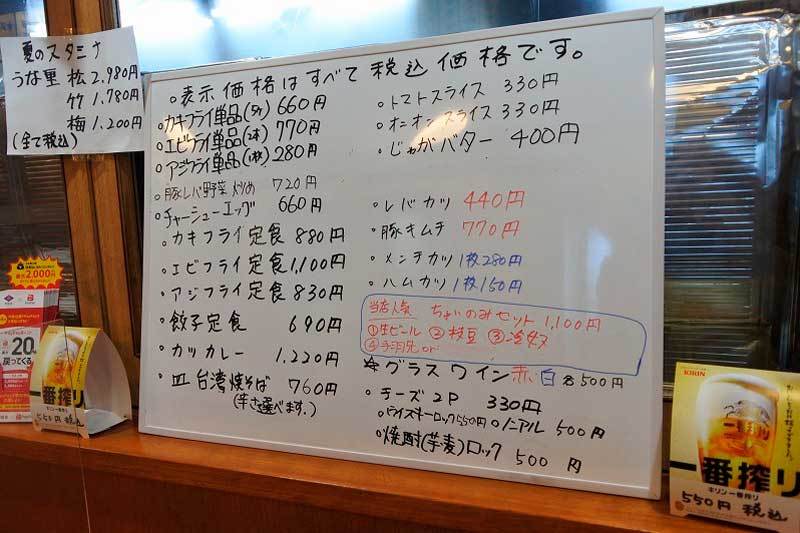 夏のスタミナ
うな重 松 2.980円
竹 1.780円
梅 1.200円
(全て税込)
○表示価格はすべて税込価格です。
○カキフライ単品(5ケ) 660円
○エビフライ単品(2本) 770円
○アジフライ単品(1枚) 280円
○豚レバ野菜炒め 720円
○チャーシューエッグ 660円
○カキフライ定食 880円
○エビフライ定食 1,100円
○アジフライ定食 830円
○餃子定食 690円
○カツカレー 1,220円
○皿台湾焼そば 760円
(辛さ選べます。)
○トマトスライス 330円
○オニオンスライス 330円
○じゃがバター 400円
○レバカツ 440円
○豚キムチ 770円
○メンチカツ 1枚280円
○ハムカツ 1枚150円
当店人気 ちょいのみセット 1,100円
①生ビール ②枝豆 ③冷奴
④手羽先 or
☆グラスワイン 赤 白 各500円
○チーズ2P 330円
○バイスキーロック550円 ○ノンアル 500円
○焼酎(芋麦)ロック 500円
最大2,000円
20
戻ってくる
一番搾り
550円 税込
KIRIN
一番搾り
一番搾り
キリン一番搾り
550円 税込